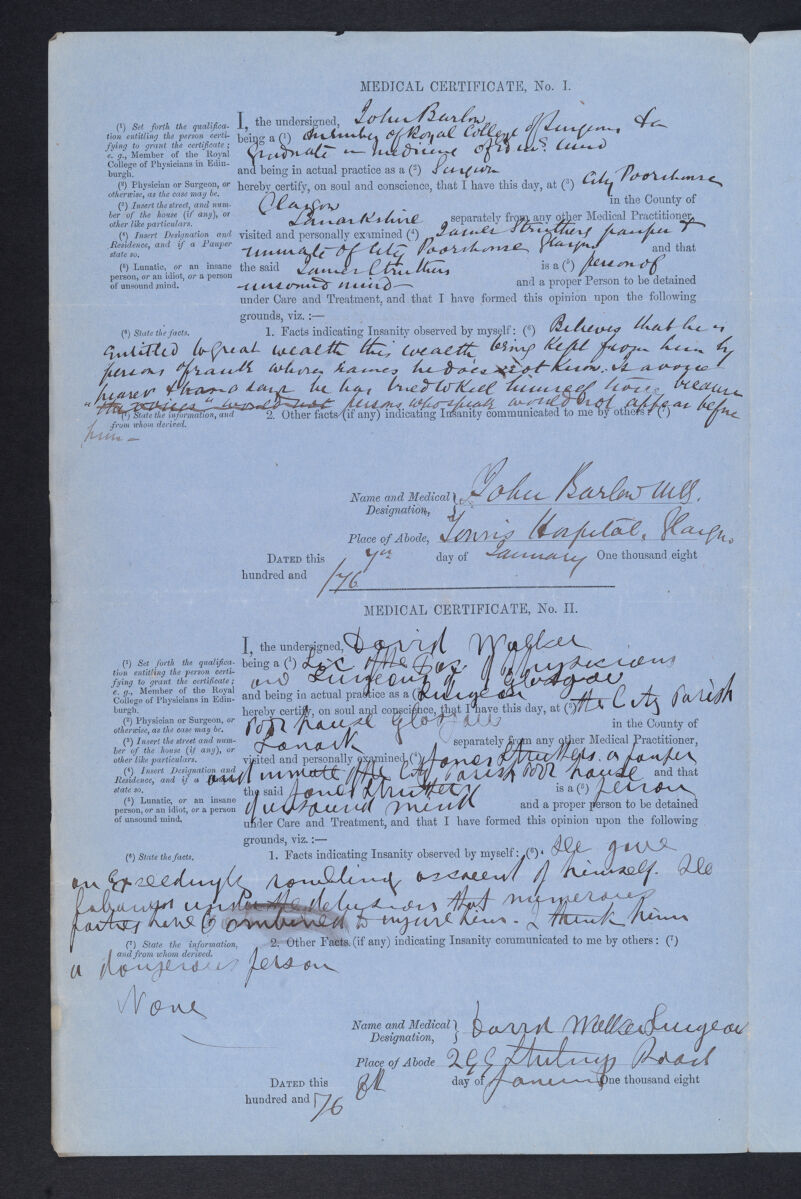 MEDICAL CERTIFICATE, No. I.
(1) Set forth the qualifica-
tion entitling the person certi-
fying to grant the certificate;
e. g., Member of the Royal
College of Physicians in Edin-
burgh.
(2) Physician or Surgeon, or
otherwise, as the case may be.
(3) Insert the street, and num-
ber of the house (if any), or
other like particulars.
(4) Insert Designation and
Residence, and if a Pauper
state so.
(5) Lunatic, or an insane
person, or an idiot, or a person
of unsound mind.
I, the undersigned, John Barlow
being a (1) member of Royal College of Surgeons & a
graduate in medicine of
and being in actual practice as a (2) Surgeon
hereby certify, on soul and conscience, that I have this day, at (3) City Poorshouse
Glasgow in the County of
Lanarkshire separately from any other Medical Practitioner,
visited and personally examined (4) James Struthers pauper &
inmate of City Poorshouse Glasgow and that
the said James Struthers is a (5) person of
unsound mind and a proper Person to be detained
under Care and Treatment, and that I have formed this opinion upon the following
grounds, viz.:—
(6) State the facts.
1. Facts indicating Insanity observed by myself: (6) Believes that he is
entitled to great wealth this wealth being kept from him by
persons of rank whose names he does not know. Is a voice
hearer & says he has tried to kill himself because
"the voices" would not persons who speak would not appear before
him —
(7) State the information, and
from whom derived.
2. Other facts (if any) indicating Insanity communicated to me by others: (7)
Name and Medical
Designation, John Barlow
Place of Abode, Hospital, Glasgow
DATED this day of January One thousand eight
hundred and /76
MEDICAL CERTIFICATE, No. II.
(1) Set forth the qualifica-
tion entitling the person certi-
fying to grant the certificate;
e. g., Member of the Royal
College of Physicians in Edin-
burgh.
(2) Physician or Surgeon, or
otherwise, as the case may be.
(3) Insert the street and num-
ber of the house (if any), or
other like particulars.
(4) Insert Designation and
Residence, and if a Pauper
state so.
(5) Lunatic, or an insane
person, or an idiot, or a person
of unsound mind.
I, the undersigned, David Walker
being a (1) Lic of the Fac of Physicians
and Surgeons of Glasgow
and being in actual practice as a (2) Surgeon
hereby certify, on soul and conscience, that I have this day, at (3) the City Parish
Poor house Glasgow in the County of
Lanark separately from any other Medical Practitioner,
visited and personally examined (4) James Struthers a pauper
and inmate of the City Parish Poor house and that
the said James Struthers is a (5) person
of unsound mind and a proper person to be detained
under Care and Treatment, and that I have formed this opinion upon the following
grounds, viz.:—
(6) State the facts.
1. Facts indicating Insanity observed by myself: (6). He gave
an Exceedingly rambling account of himself. He
labours under the delusions that numerous
parties have Combined to injure him. I think him
(7) State the information,
and from whom derived.
2. Other Facts (if any) indicating Insanity communicated to me by others: (7)
a dangerous person
None
Name and Medical
Designation, David Walker Surgeon
Place of Abode Road
DATED this 8th day of January One thousand eight
hundred and /76